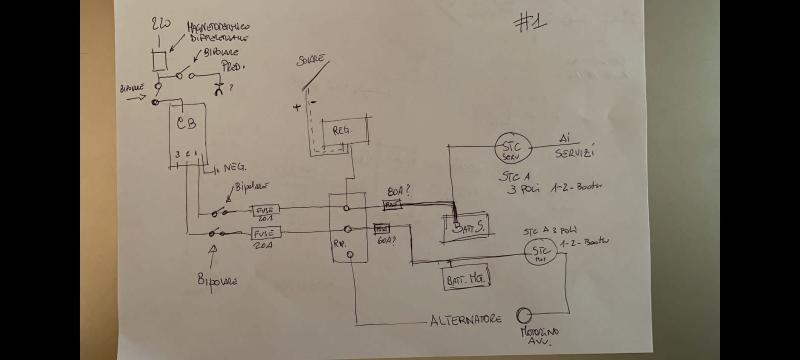 #1
220
MAGNETOTERMICO
DIFFERENZIALE
BIPOLARE
PRED.
?
BIPOLARE
SOLARE
+ -
REG.
CB
3 2 1
NEG.
Bipolare
FUSE
20A
FUSE
20A
Bipolare
RIP.
80A?
FUSE
60A?
BATT S.
BATT. MO.
STC
SERV
AI
SERVIZI
STC A
3 POLI 1-2-Both
STC A 3 POLI
1-2-Both
STC
MOT
ALTERNATORE
MOTORINO
AVV.